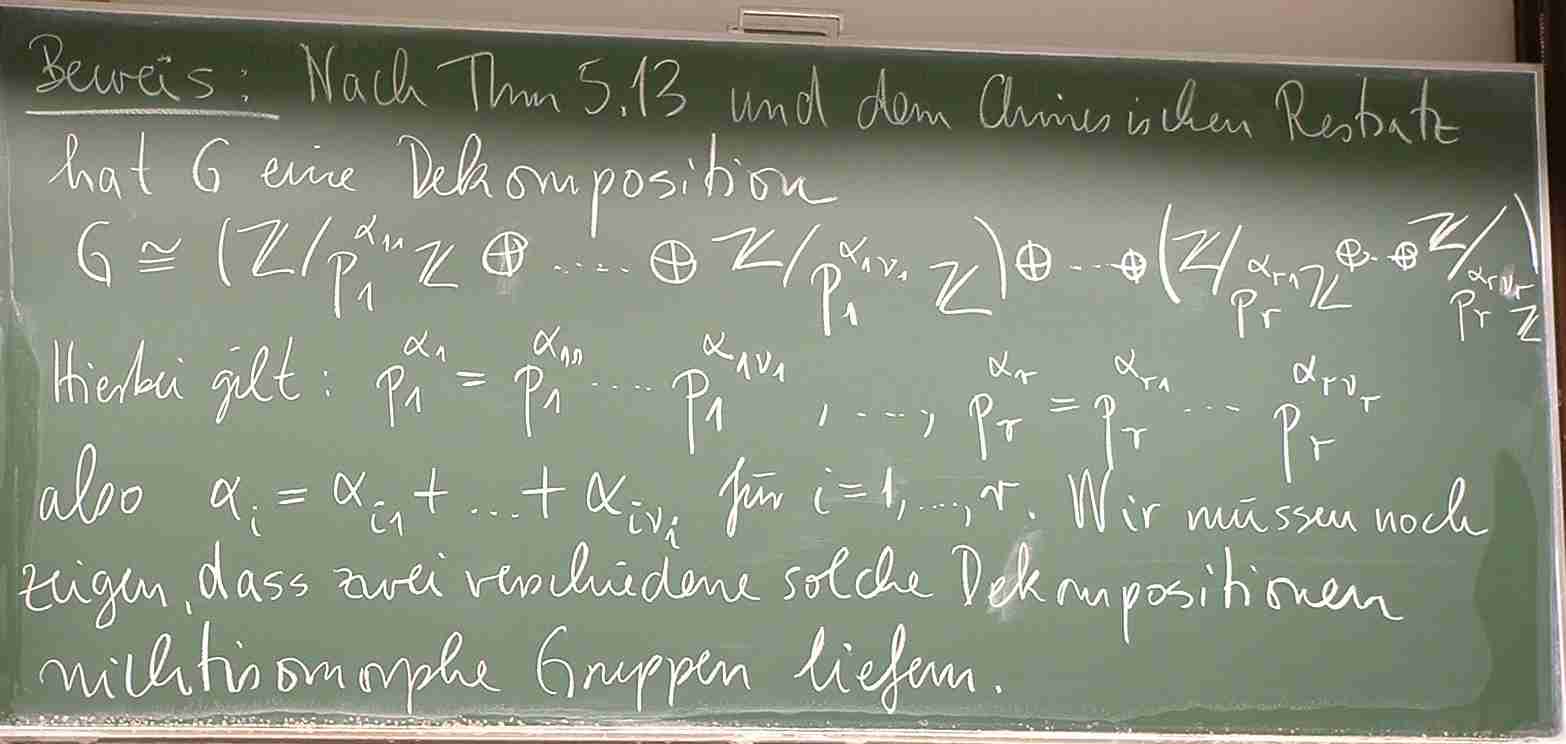 Beweis: Nach Thm 5.13 und dem Chinesischen Restsatz
hat G eine Dekomposition
G ≅ (ℤ/p₁^{α₁₁}ℤ ⊕ ..... ⊕ ℤ/p₁^{α_{1ν₁}}ℤ) ⊕ ... ⊕ (ℤ/p_r^{α_{r1}}ℤ ⊕ .. ⊕ ℤ/p_r^{α_{rν_r}}ℤ)
Hierbei gilt: p₁^{α₁} = p₁^{α₁₁} ..... p₁^{α_{1ν₁}} , ..., p_r^{α_r} = p_r^{α_{r1}} ... p_r^{α_{rν_r}}
also α_i = α_{i1} + ... + α_{iν_i} für i=1,...,r. Wir müssen noch
zeigen, dass zwei verschiedene solche Dekompositionen
nichtisomorphe Gruppen liefern.